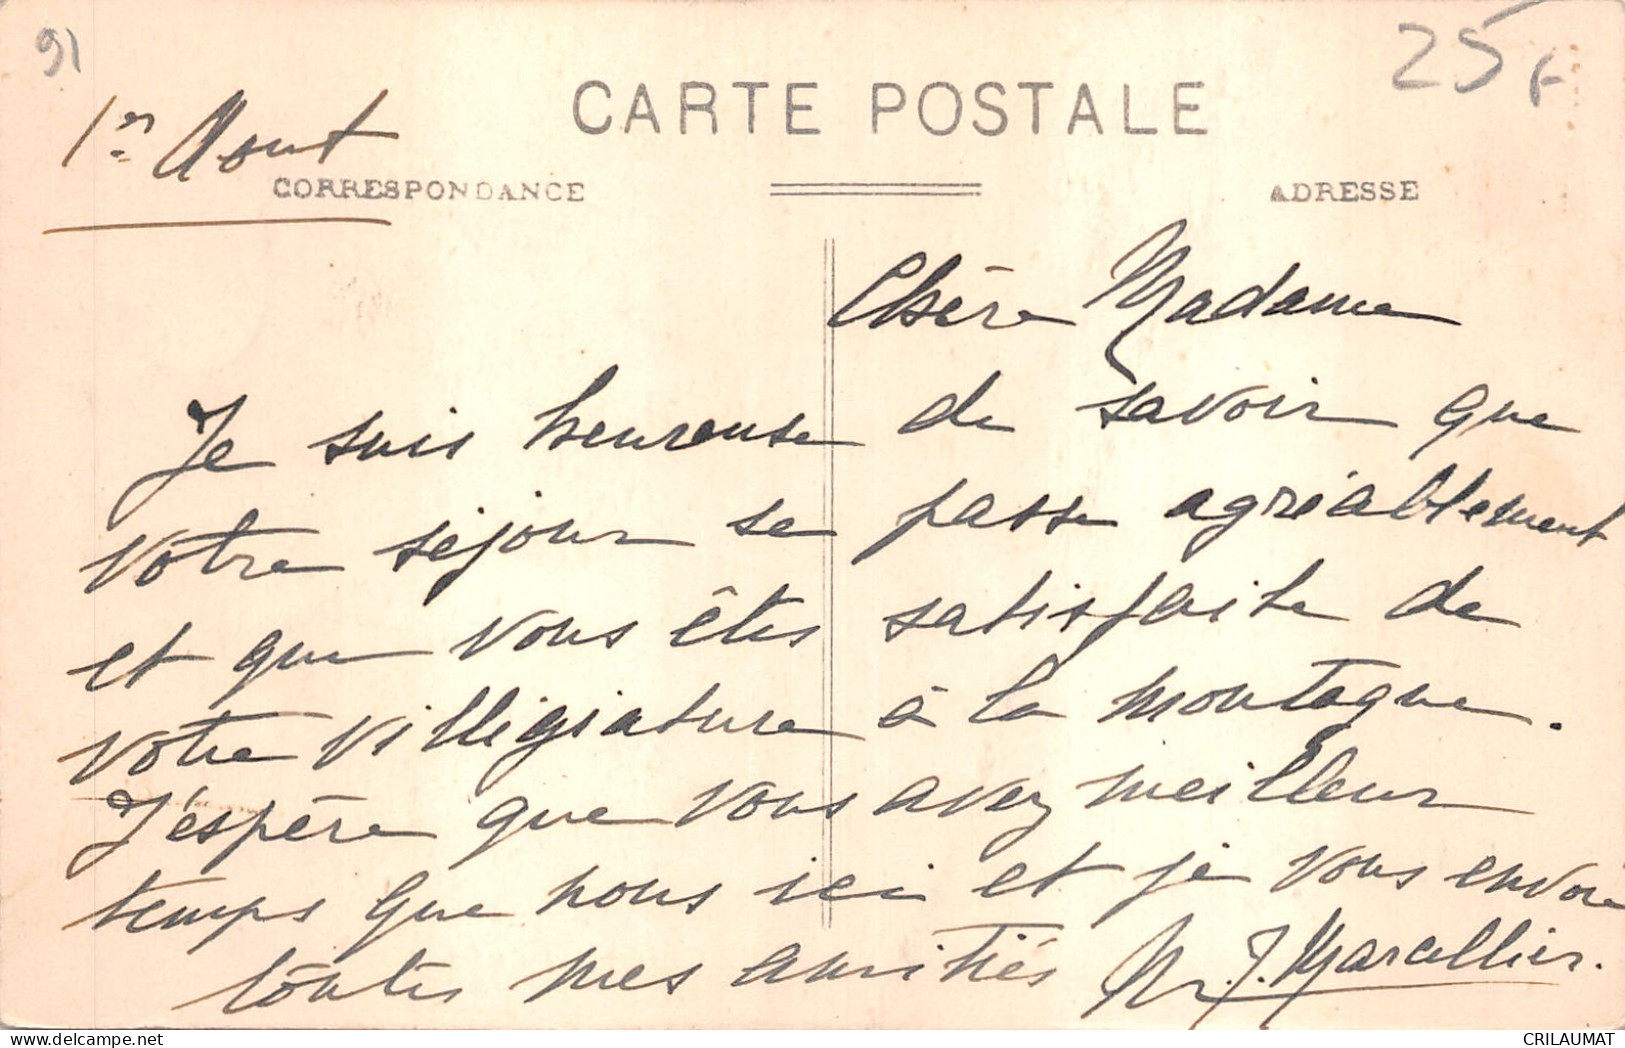 91
25 F
CARTE POSTALE
1er Aout
CORRESPONDANCE
ADRESSE
Chère Madame
Je suis heureuse de savoir que
votre séjour se passe agréablement
et que vous êtes satisfaite de
votre villégiature à la montagne.
J'espère que vous avez meilleur
temps que nous ici et je vous envoie
toutes mes amitiés
J. Marcellier.
CRILAUMAT